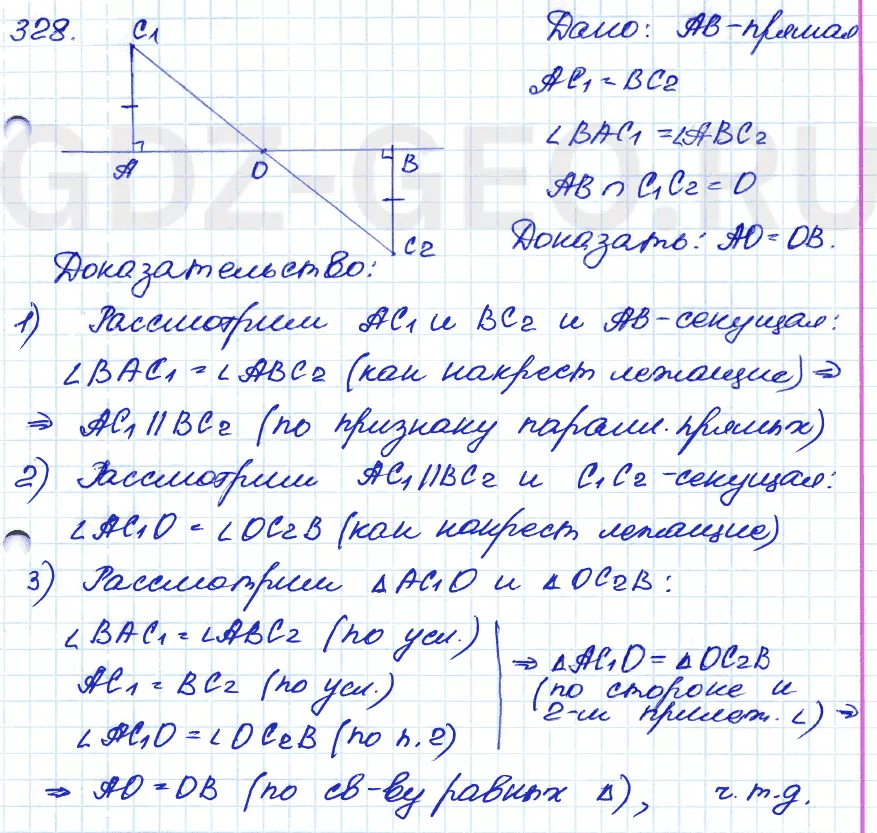 328.
C1
A
O
B
C2
Дано: AB-прямая
AC1 = BC2
∠BAC1 = ∠ABC2
AB ∩ C1C2 = O
Доказать: AO = OB.
GDZ-GEO.RU
Доказательство:
1) Рассмотрим AC1 и BC2 и AB-секущая:
∠BAC1 = ∠ABC2 (как накрест лежащие) ⇒
⇒ AC1 || BC2 (по признаку паралл. прямых)
2) Рассмотрим AC1 || BC2 и C1C2 -секущая:
∠AC1O = ∠OC2B (как накрест лежащие)
3) Рассмотрим △AC1O и △OC2B:
∠BAC1 = ∠ABC2 (по усл.)
AC1 = BC2 (по усл.)
∠AC1O = ∠OC2B (по п. 2)
⇒ △AC1O = △OC2B
(по стороне и
2-м прилеж. ∠) ⇒
⇒ AO = OB (по св-ву равных △), ч.т.д.